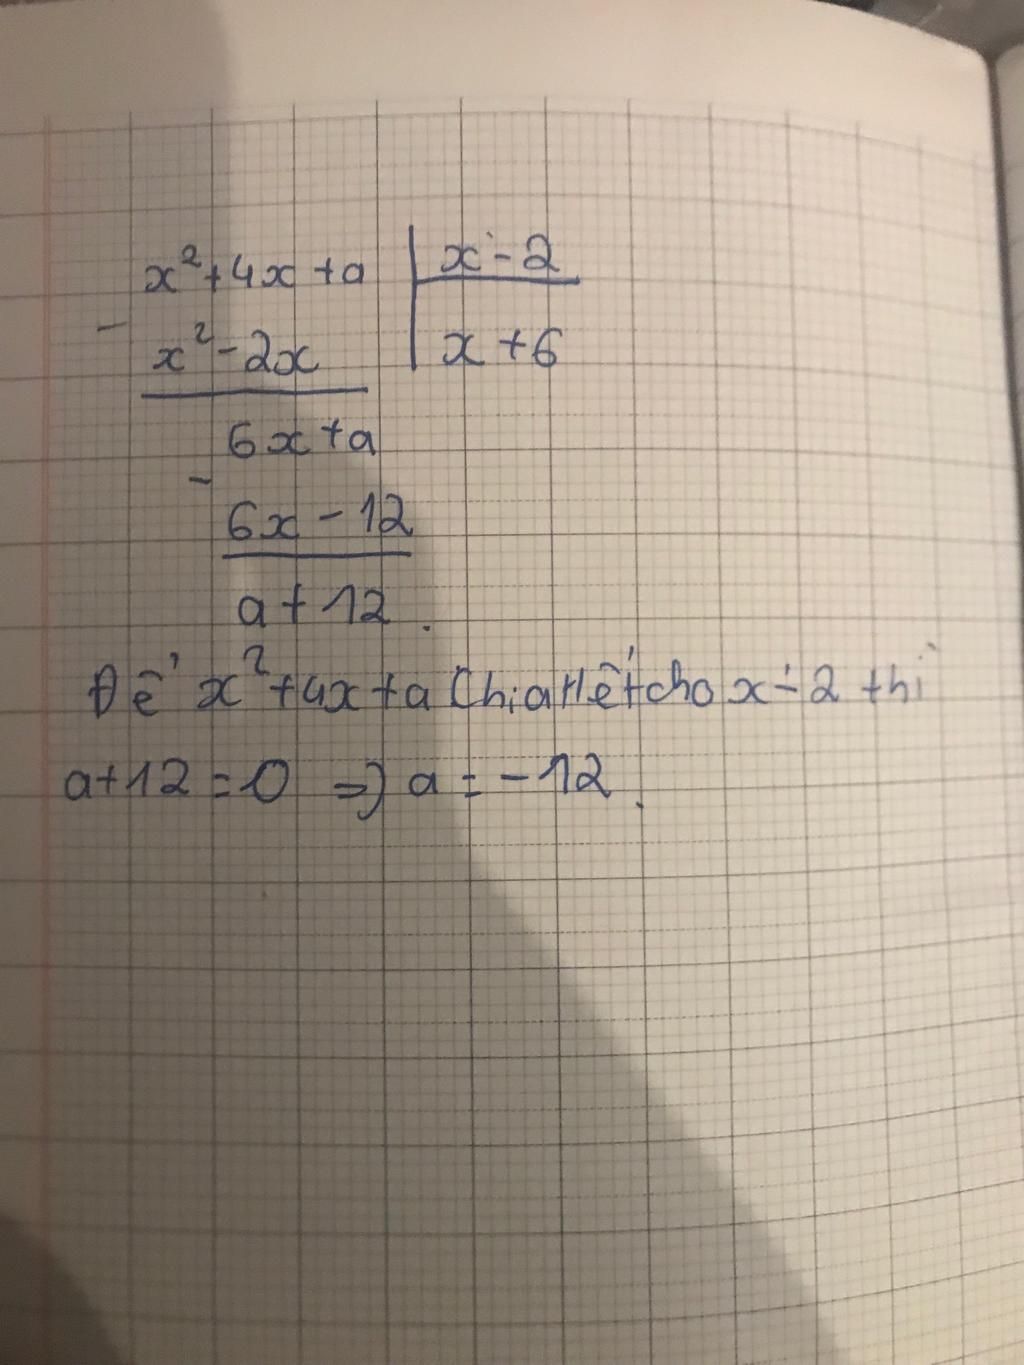 x²+4x+a | x-2
- x²-2x | x+6
6x+a
- 6x-12
a+12.
Để x²+4x+a chia hết cho x-2 thì
a+12=0 => a=-12.